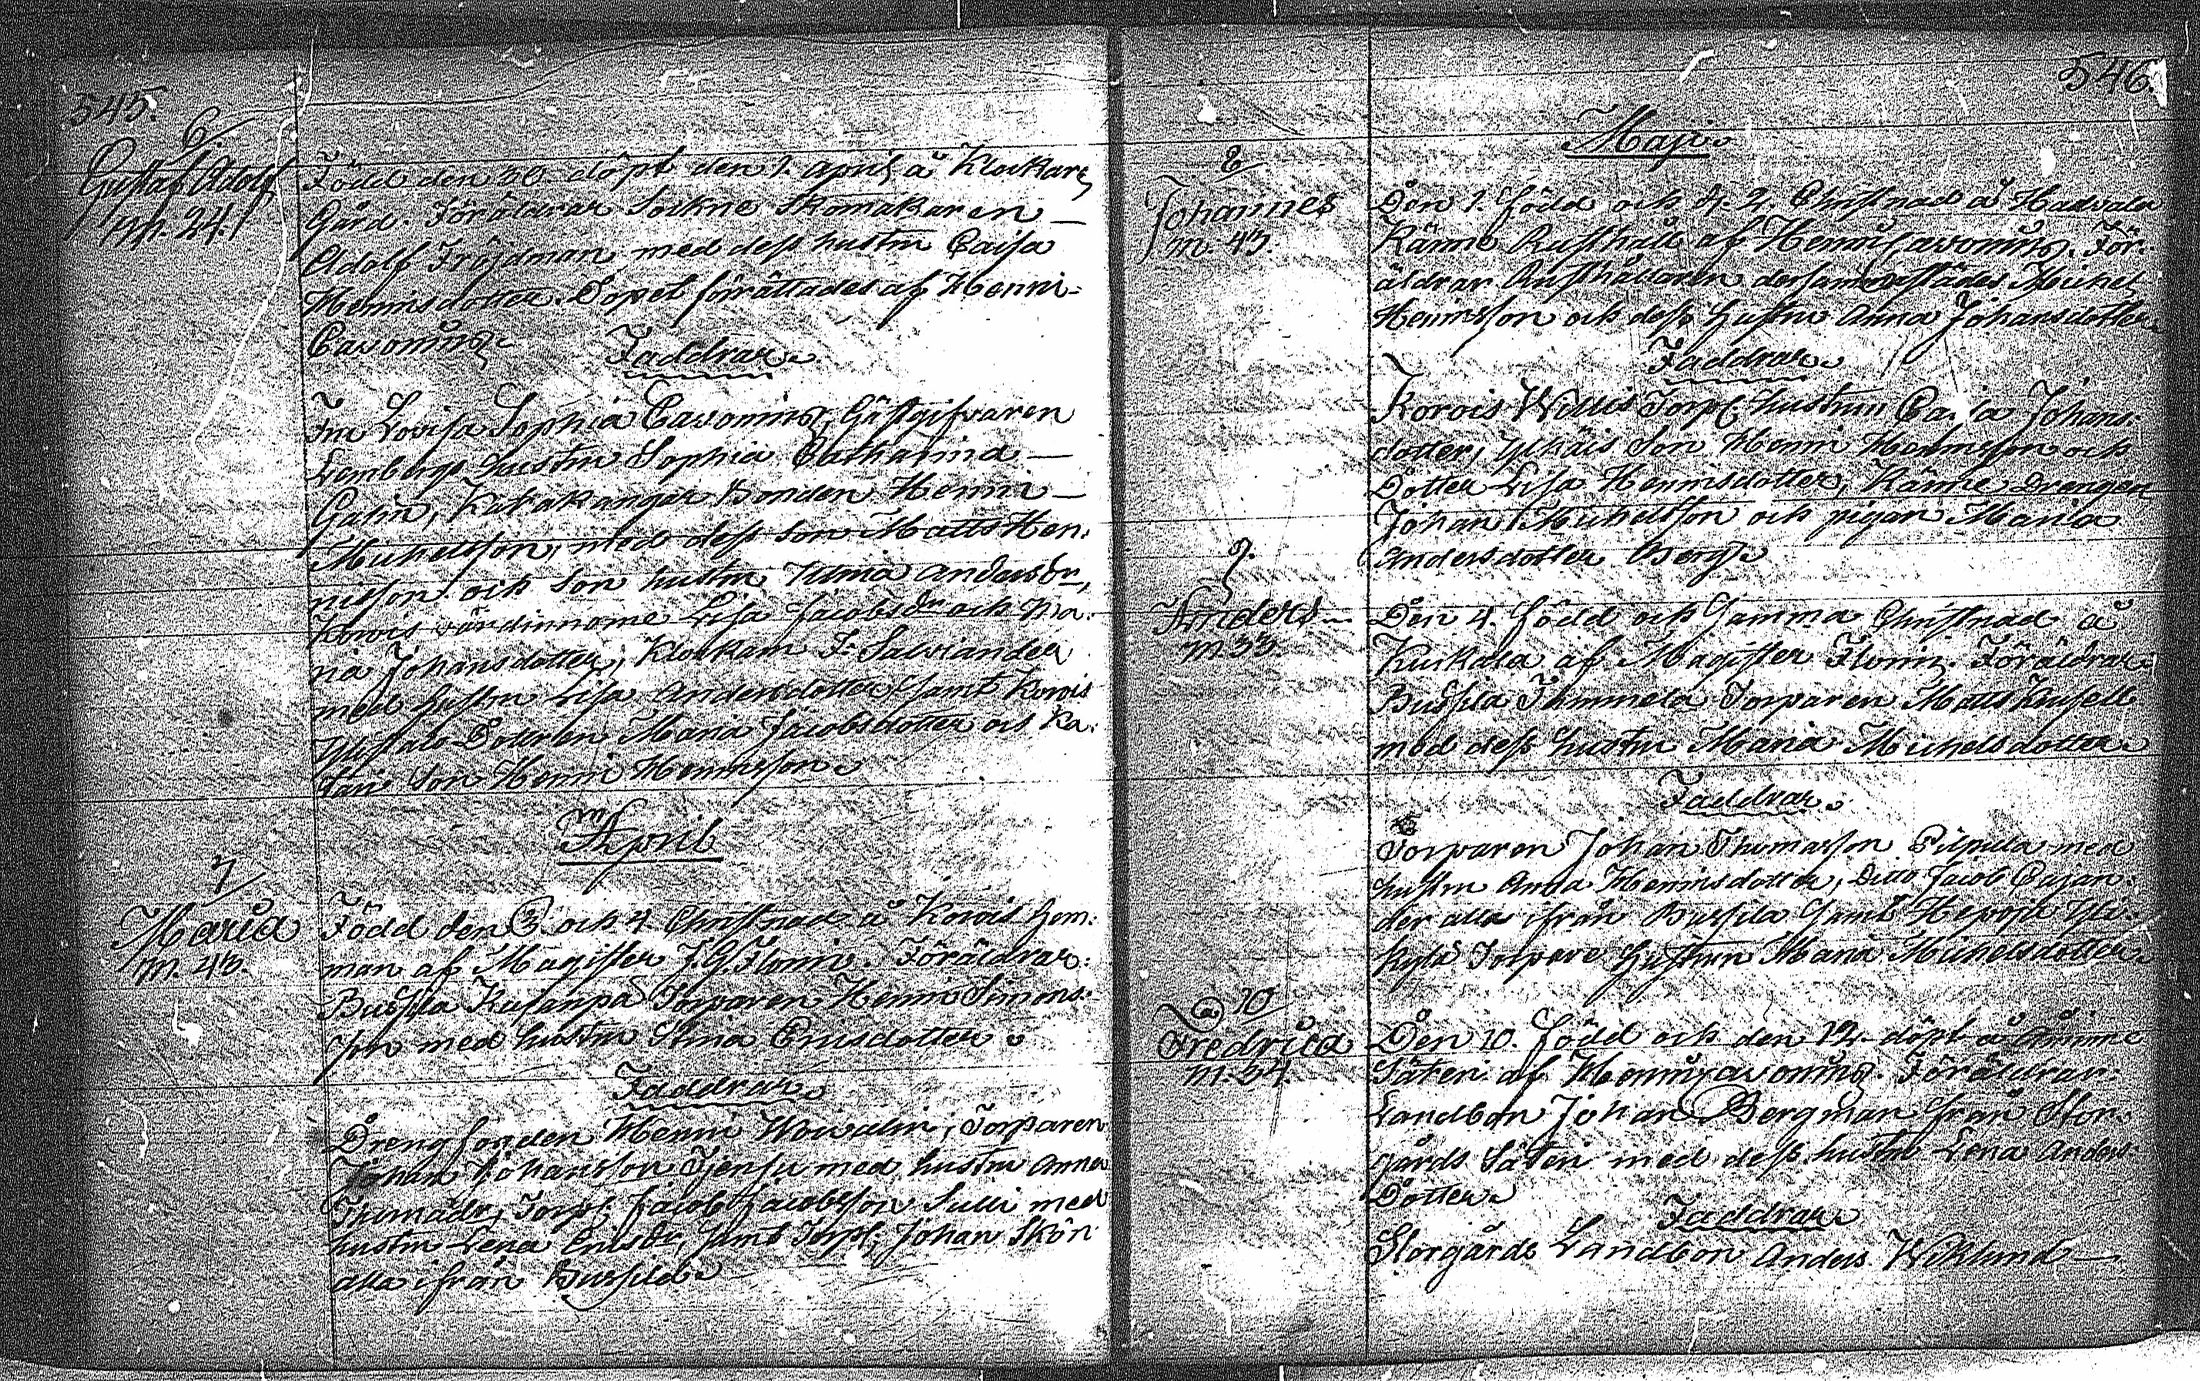 545.
6
Gustaf Adolf
m. 24.
Född den 30 döpt den 1. April å Klockars
Gård. Föräldrar Sockne Skomakaren
Adolf Fröjdman med dess hustru Caisa
Hennisdotter. Dopet förättades af Henri-
Cavonius
Faddrar
Fru Lovisa Sophia Cavonius, Gästgifvaren
Lembergs hustru Sophia Catharina
Galin, Bonden Henri
Michelsson, med dess son Matts Hen-
risson och Son hustru Ulrica Andersdr,
Korvis värdinnorne Lisa Jacobsdr och Ma-
ria Johansdotter, Klockarn F. Salviander
med hustru Lisa Andersdotter samt Korvis
Dottren Maria Jacobsdotter och Ka-
Son Henri Hennisson
April
7
Maria
m. 43.
Född den 3. och 4. Christnad å Korvis hem-
man af Magister J. G. Florin. Föräldrar:
Bussila Torparen Henri Simons-
son med hustru Stina Ericsdotter
Faddrar
Dreng Henri Torparen
Johan Johansson med hustru Anna
Torp. Jacob Jacobsson Sulli med
hustru Lena Ericsdr, samt Torp. Johan Skön
alla ifrån Bussila
546.
Maji
8
Johannes
m. 43.
Den 1. född och d. 2. Christnad å
Kärme Rusthåll af Henri Cavonius. För-
äldrar Rusthållaren dersammastädes Michel
Hennisson och dess Hustru Anna Johansdotter
Faddrar
Korvis Torp. hustrun Caisa Johans-
dotter, Son Henri Hennisson och
Dotter Lisa Hennisdotter, Kärme Drengen
Johan Michelsson och pigan Maria
Andersdotter Berg
9.
Anders
m. 33.
Den 4. född och Samma Christnad å
Kuskala af Magister Florin. Föräldrar:
Bussila Torparen Matts
med dess hustru Maria Michelsdotter
Faddrar
Torparen Johan Thomasson med
hustru Anna Hennisdotter, Ditto Jacob Cajan-
der alla ifrån Bussila samt
Torpare Hustrun Maria Michelsdotter
10
Fredrica
m. 34.
Den 10. född och den 12. döpt å Åminne
Säteri af Henri Cavonius. Föräldrar:
Landbon Johan Bergman från Stor-
gårds Säteri med dess hustru Lena Anders-
Dotter
Faddrar
Storgårds Landbon Anders Wiklund